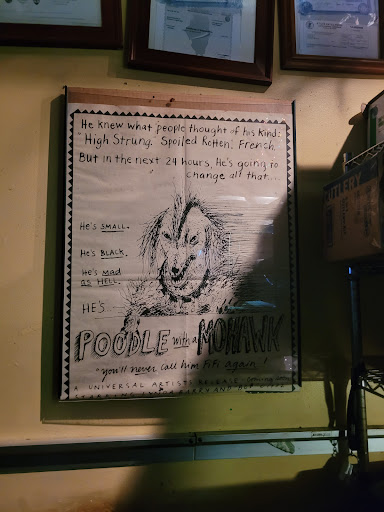 He knew what people thought of his kind:
"High Strung. Spoiled Rotten. French.
But in the next 24 hours, He's going to
change all that...
He's SMALL.
He's BLACK.
He's mad
as HELL.
HE'S
POODLE with a MOHAWK
"you'll never call him FiFi again"
A UNIVERSAL ARTISTS RELEASE
CUTLERY